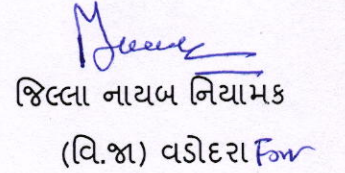 જિલ્લા નાયબ નિયામક
(વિ.જા) વડોદરા For